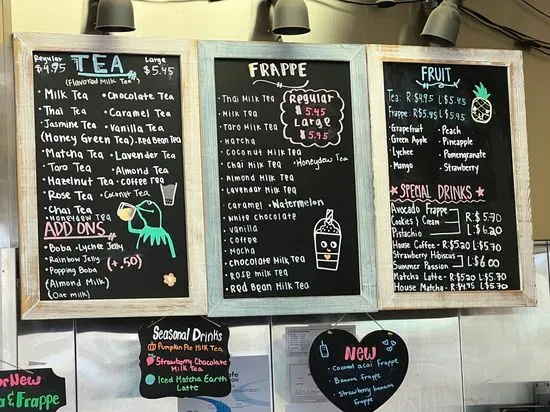 Regular
$4.95
TEA
Large
$5.45
(Flavored Milk Tea)
• Milk Tea
• Chocolate Tea
Thai Tea
• Caramel Tea
Jasmine Tea
• Vanilla Tea
(Honey Green Tea)
• Red Bean Tea
• Matcha Tea
• Lavender Tea
Taro Tea
• Almond Tea
Hazelnut Tea
• Coffee Tea
Rose Tea
• Coconut Tea
Chai Tea
• Honeydew Tea
ADD ONS
• Boba
• Lychee Jelly
Rainbow Jelly
• Popping Boba
(+.50)
(Almond Milk)
(Oat Milk)
FRAPPE
• Thai Milk Tea
• Milk Tea
• Taro Milk Tea
• Matcha
• Coconut Milk Tea
• Chai Milk Tea
• Honeydew Tea
• Almond Milk Tea
• Lavendar Milk Tea
• Caramel
• Watermelon
• White Chocolate
• Vanilla
• Coffee
• Mocha
• Chocolate Milk Tea
• Rose Milk Tea
• Red Bean Milk Tea
Regular
$5.45
Large
$5.95
FRUIT
Tea: R:$4.95 L:$5.45
Frappe: R:$5.45 L:$5.95
• Grapefruit
• Peach
• Green Apple
• Pineapple
• Lychee
• Pomengranate
• Mango
• Strawberry
SPECIAL DRINKS
Avocado Frappe
Cookies & Cream
Pistachio
R:$5.70
L:$6.20
House Coffee - R:$5.20 L:$5.70
Strawberry Hibiscus
Summer Passion
L:$6.00
Matcha Latte - R:$5.20 L:$5.70
House Matcha - R:$4.95 L:$5.70
Seasonal Drinks
Pumpkin Pie Milk Tea
Strawberry Chocolate
Milk Tea
Iced Matcha Earth
Latte
New
• Coconut acai Frappe
• Banana Frappe
• Strawberry banana
Frappe
New
& Frappe